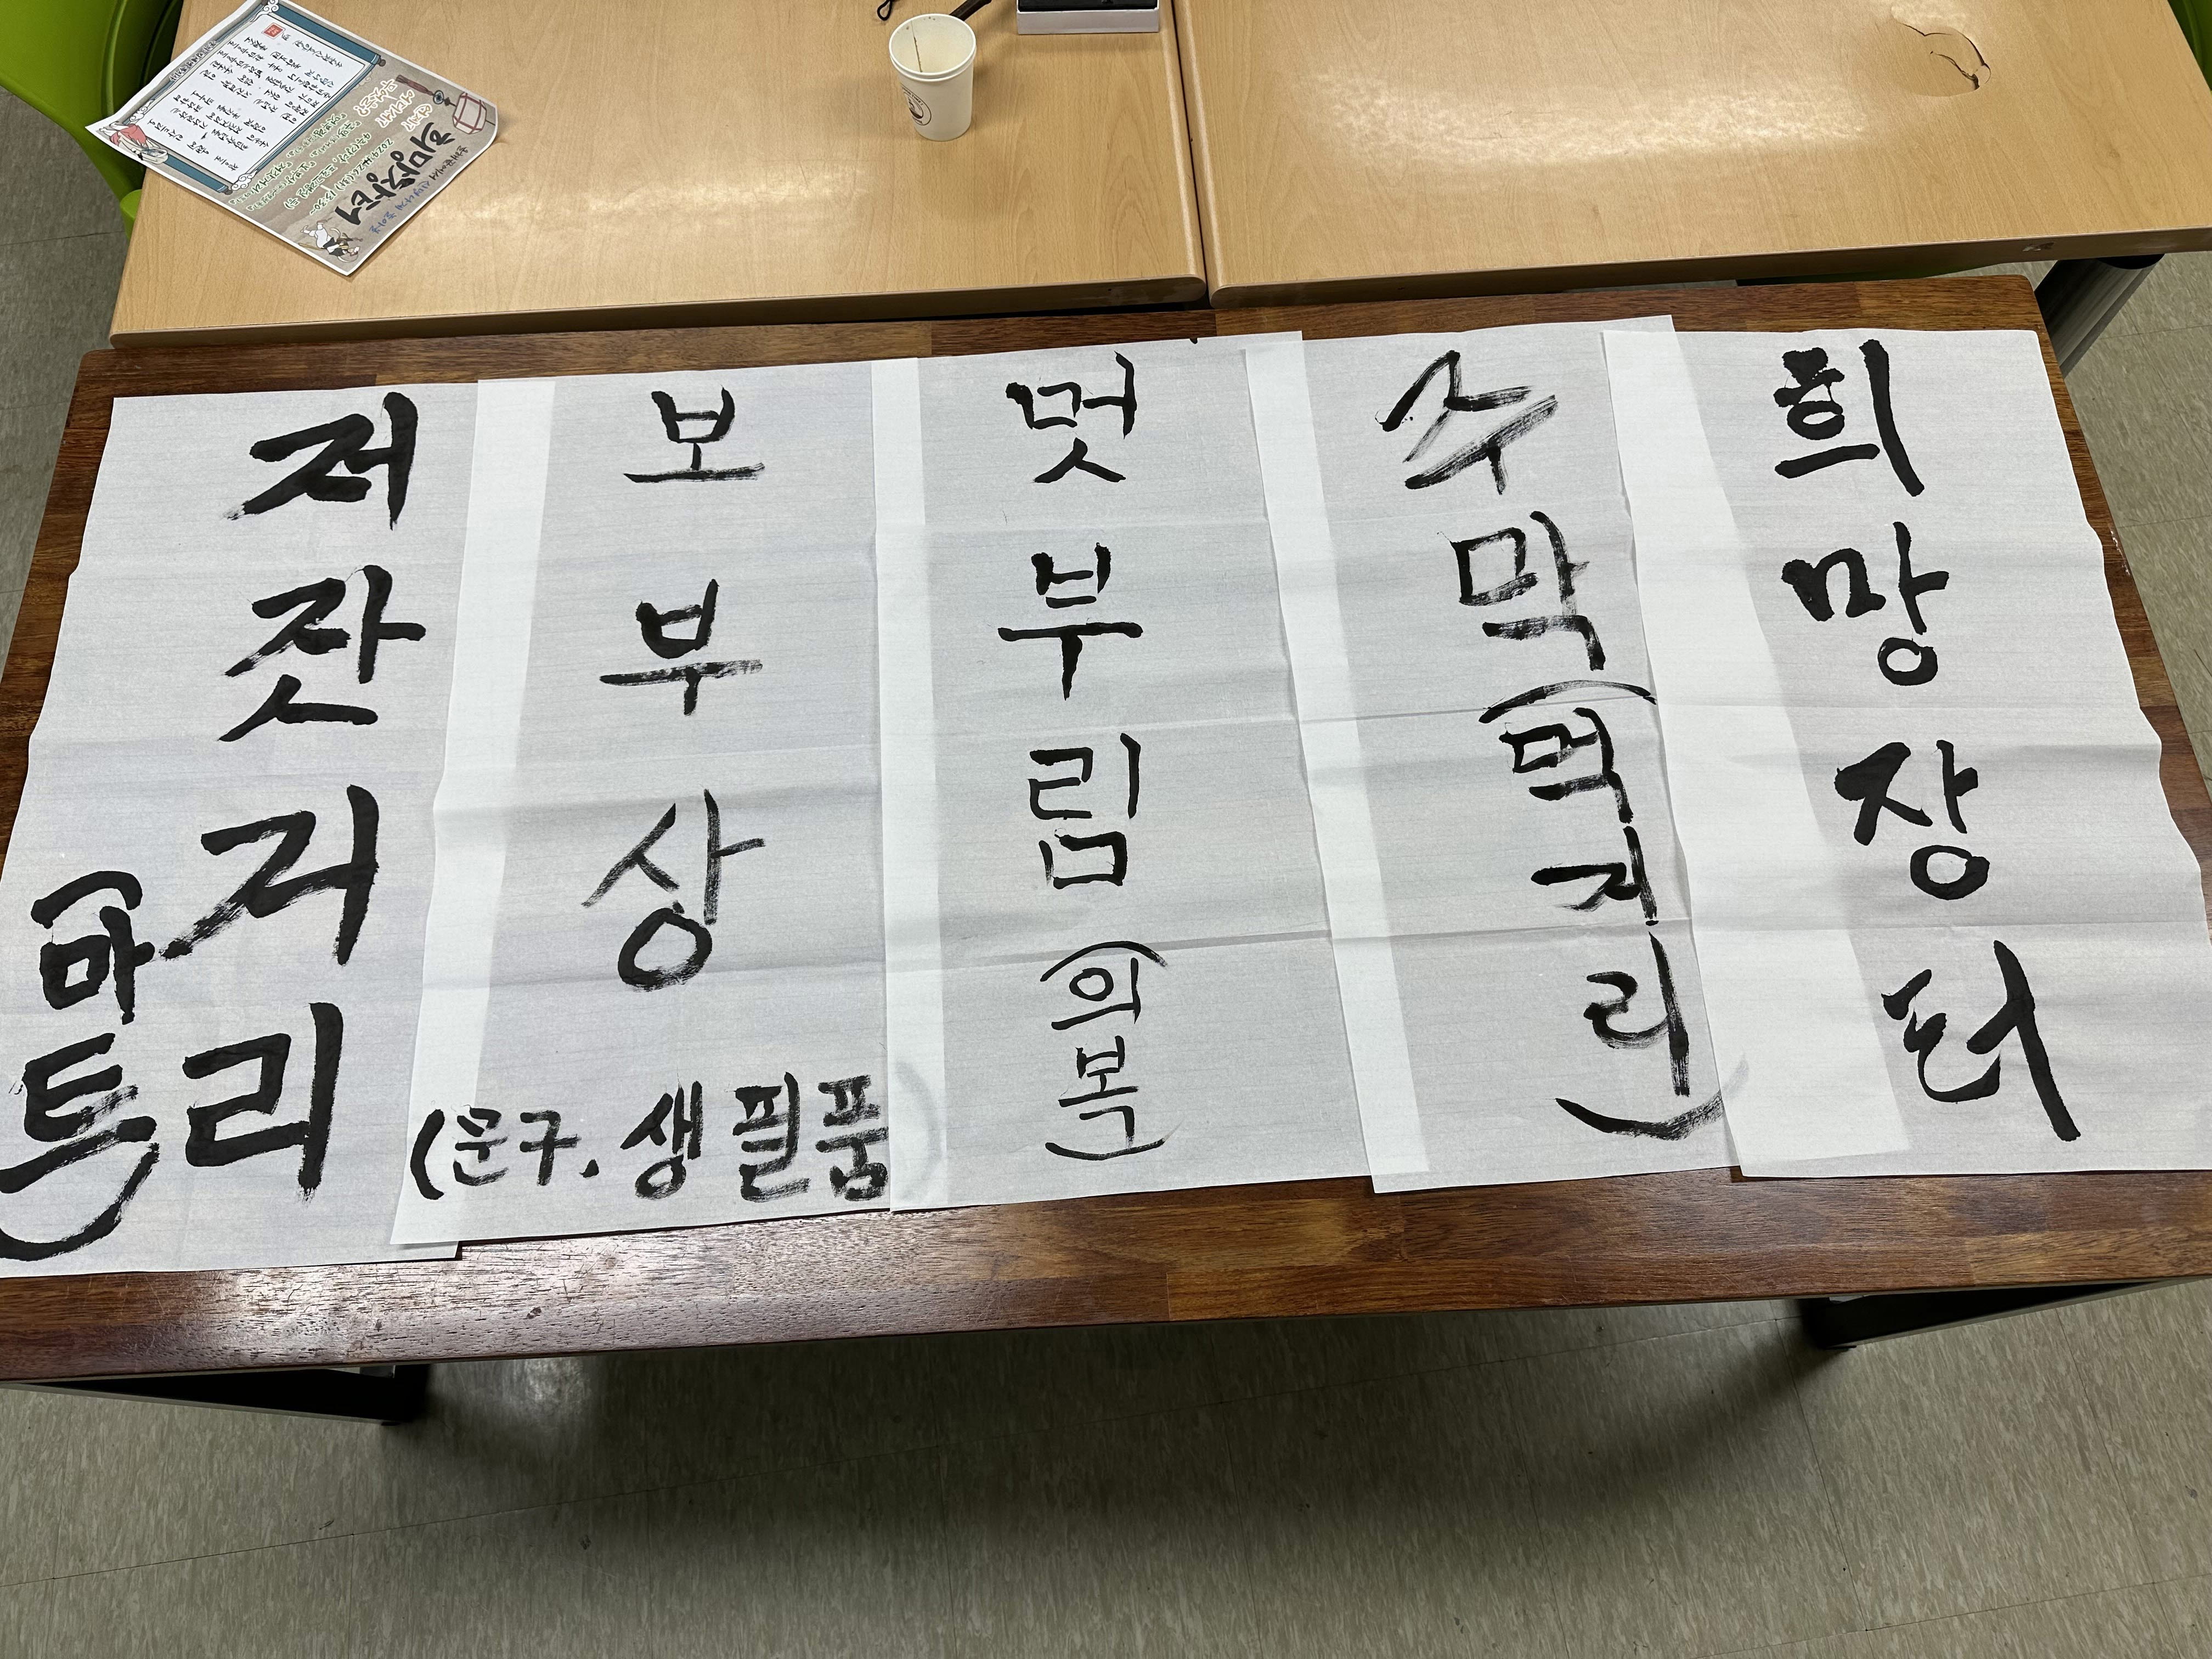 희망장터
희망장터
주막(먹거리)
멋부림(의복)
보부상
(문구, 생필품
저잣거리
(마트)